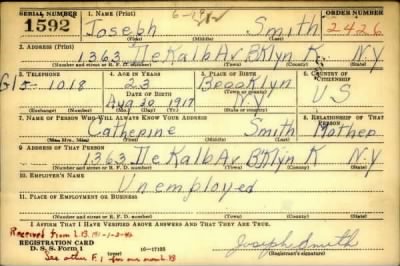 SERIAL NUMBER 1. NAME (Print) ORDER NUMBER
1592 Joseph Smith 2426
(First) (Middle) (Last)
2. ADDRESS (Print)
1363 DeKalb Av BKlyn K N.Y
(Number and street or R. F. D. number) (Town) (County) (State)
3. TELEPHONE 4. AGE IN YEARS 5. PLACE OF BIRTH 6. COUNTRY OF CITIZENSHIP
23 Brooklyn
DATE OF BIRTH (Town or county)
1018 Aug 20 1917 N.Y. U S
(Exchange) (No.) (Mo.) (Day) (Yr.) (State or country)
7. NAME OF PERSON WHO WILL ALWAYS KNOW YOUR ADDRESS 8. RELATIONSHIP OF THAT PERSON
Catherine Smith Mother
(Mr., Mrs., Miss) (First) (Middle) (Last)
9. ADDRESS OF THAT PERSON
1363 DeKalb Av BKlyn K N.Y
(Number and street or R. F. D. number) (Town) (County) (State)
10. EMPLOYER'S NAME
Unemployed
11. PLACE OF EMPLOYMENT OR BUSINESS
(Number and street or R. F. D. number) (Town) (County) (State)
I AFFIRM THAT I HAVE VERIFIED ABOVE ANSWERS AND THAT THEY ARE TRUE.
Received from L.B.
REGISTRATION CARD
D. S. S. Form 1 16—17105 Joseph Smith
(Registrant's signature)
See other F. 1 for